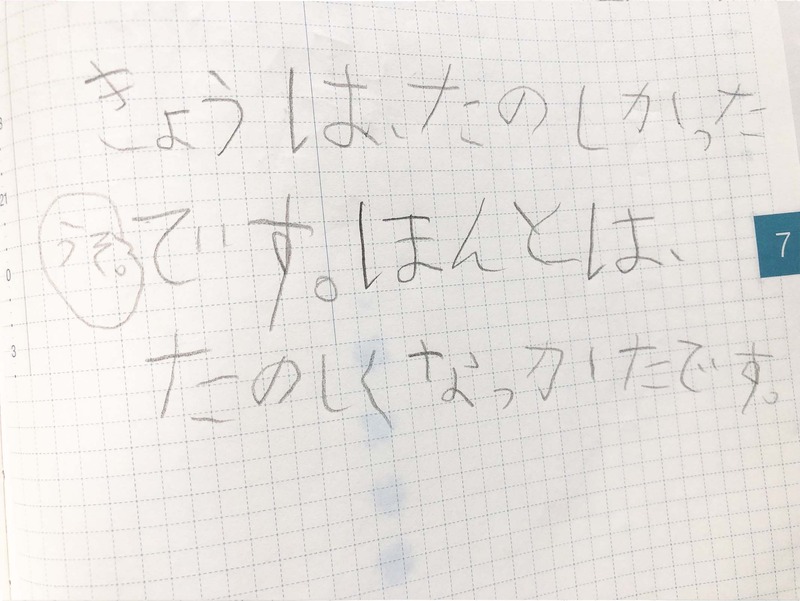 きょうは、たのしかった
うそ。です。ほんとは、
たのしくなっかたです。
7
21
0
3